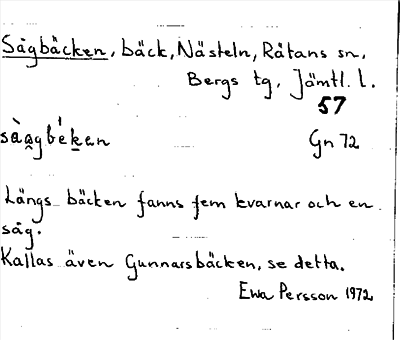 Sågbäcken, bäck, Nästeln, Råtans sn,
Bergs tg, Jämtl. l.
57
sàa̭gbé̱ken Gn 72
Längs bäcken fanns fem kvarnar och en
såg.
Kallas även Gunnarsbäcken, se detta.
Ewa Persson 1972